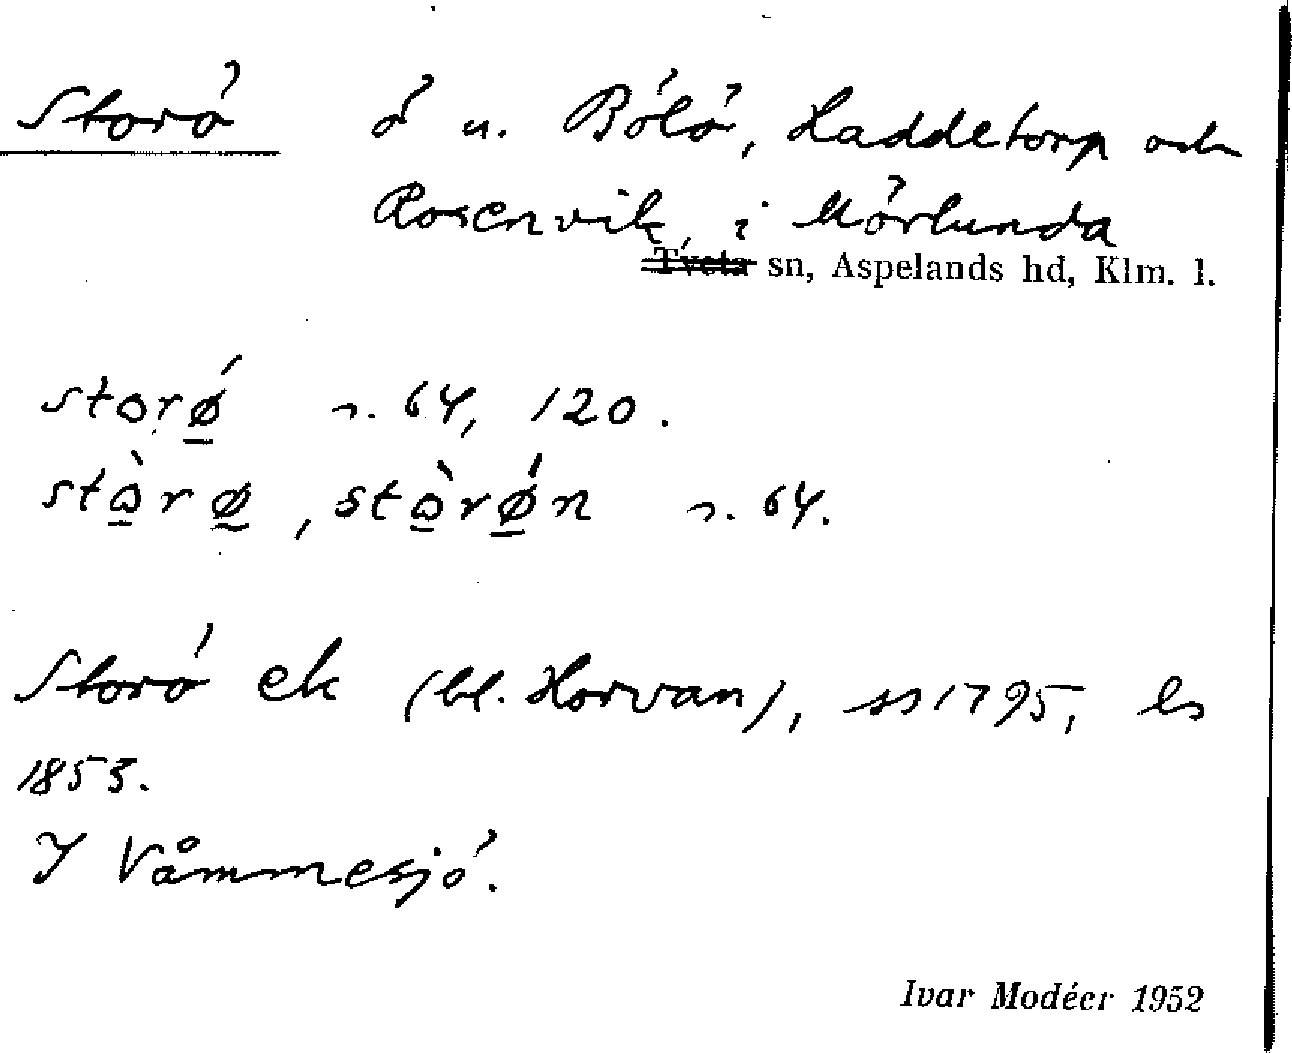 Storö ö u. Bölö, Haddetorp och
Rosenvik, i Mörlunda
Tveta sn, Aspelands hd, Klm. l.
storǿ s. 64, 120.
stòrø, stòrǿn s. 64.
Storö ek (bl. Horvan), ss 1795, ls
1853.
I Våmmesjö.
Ivar Modéer 1952